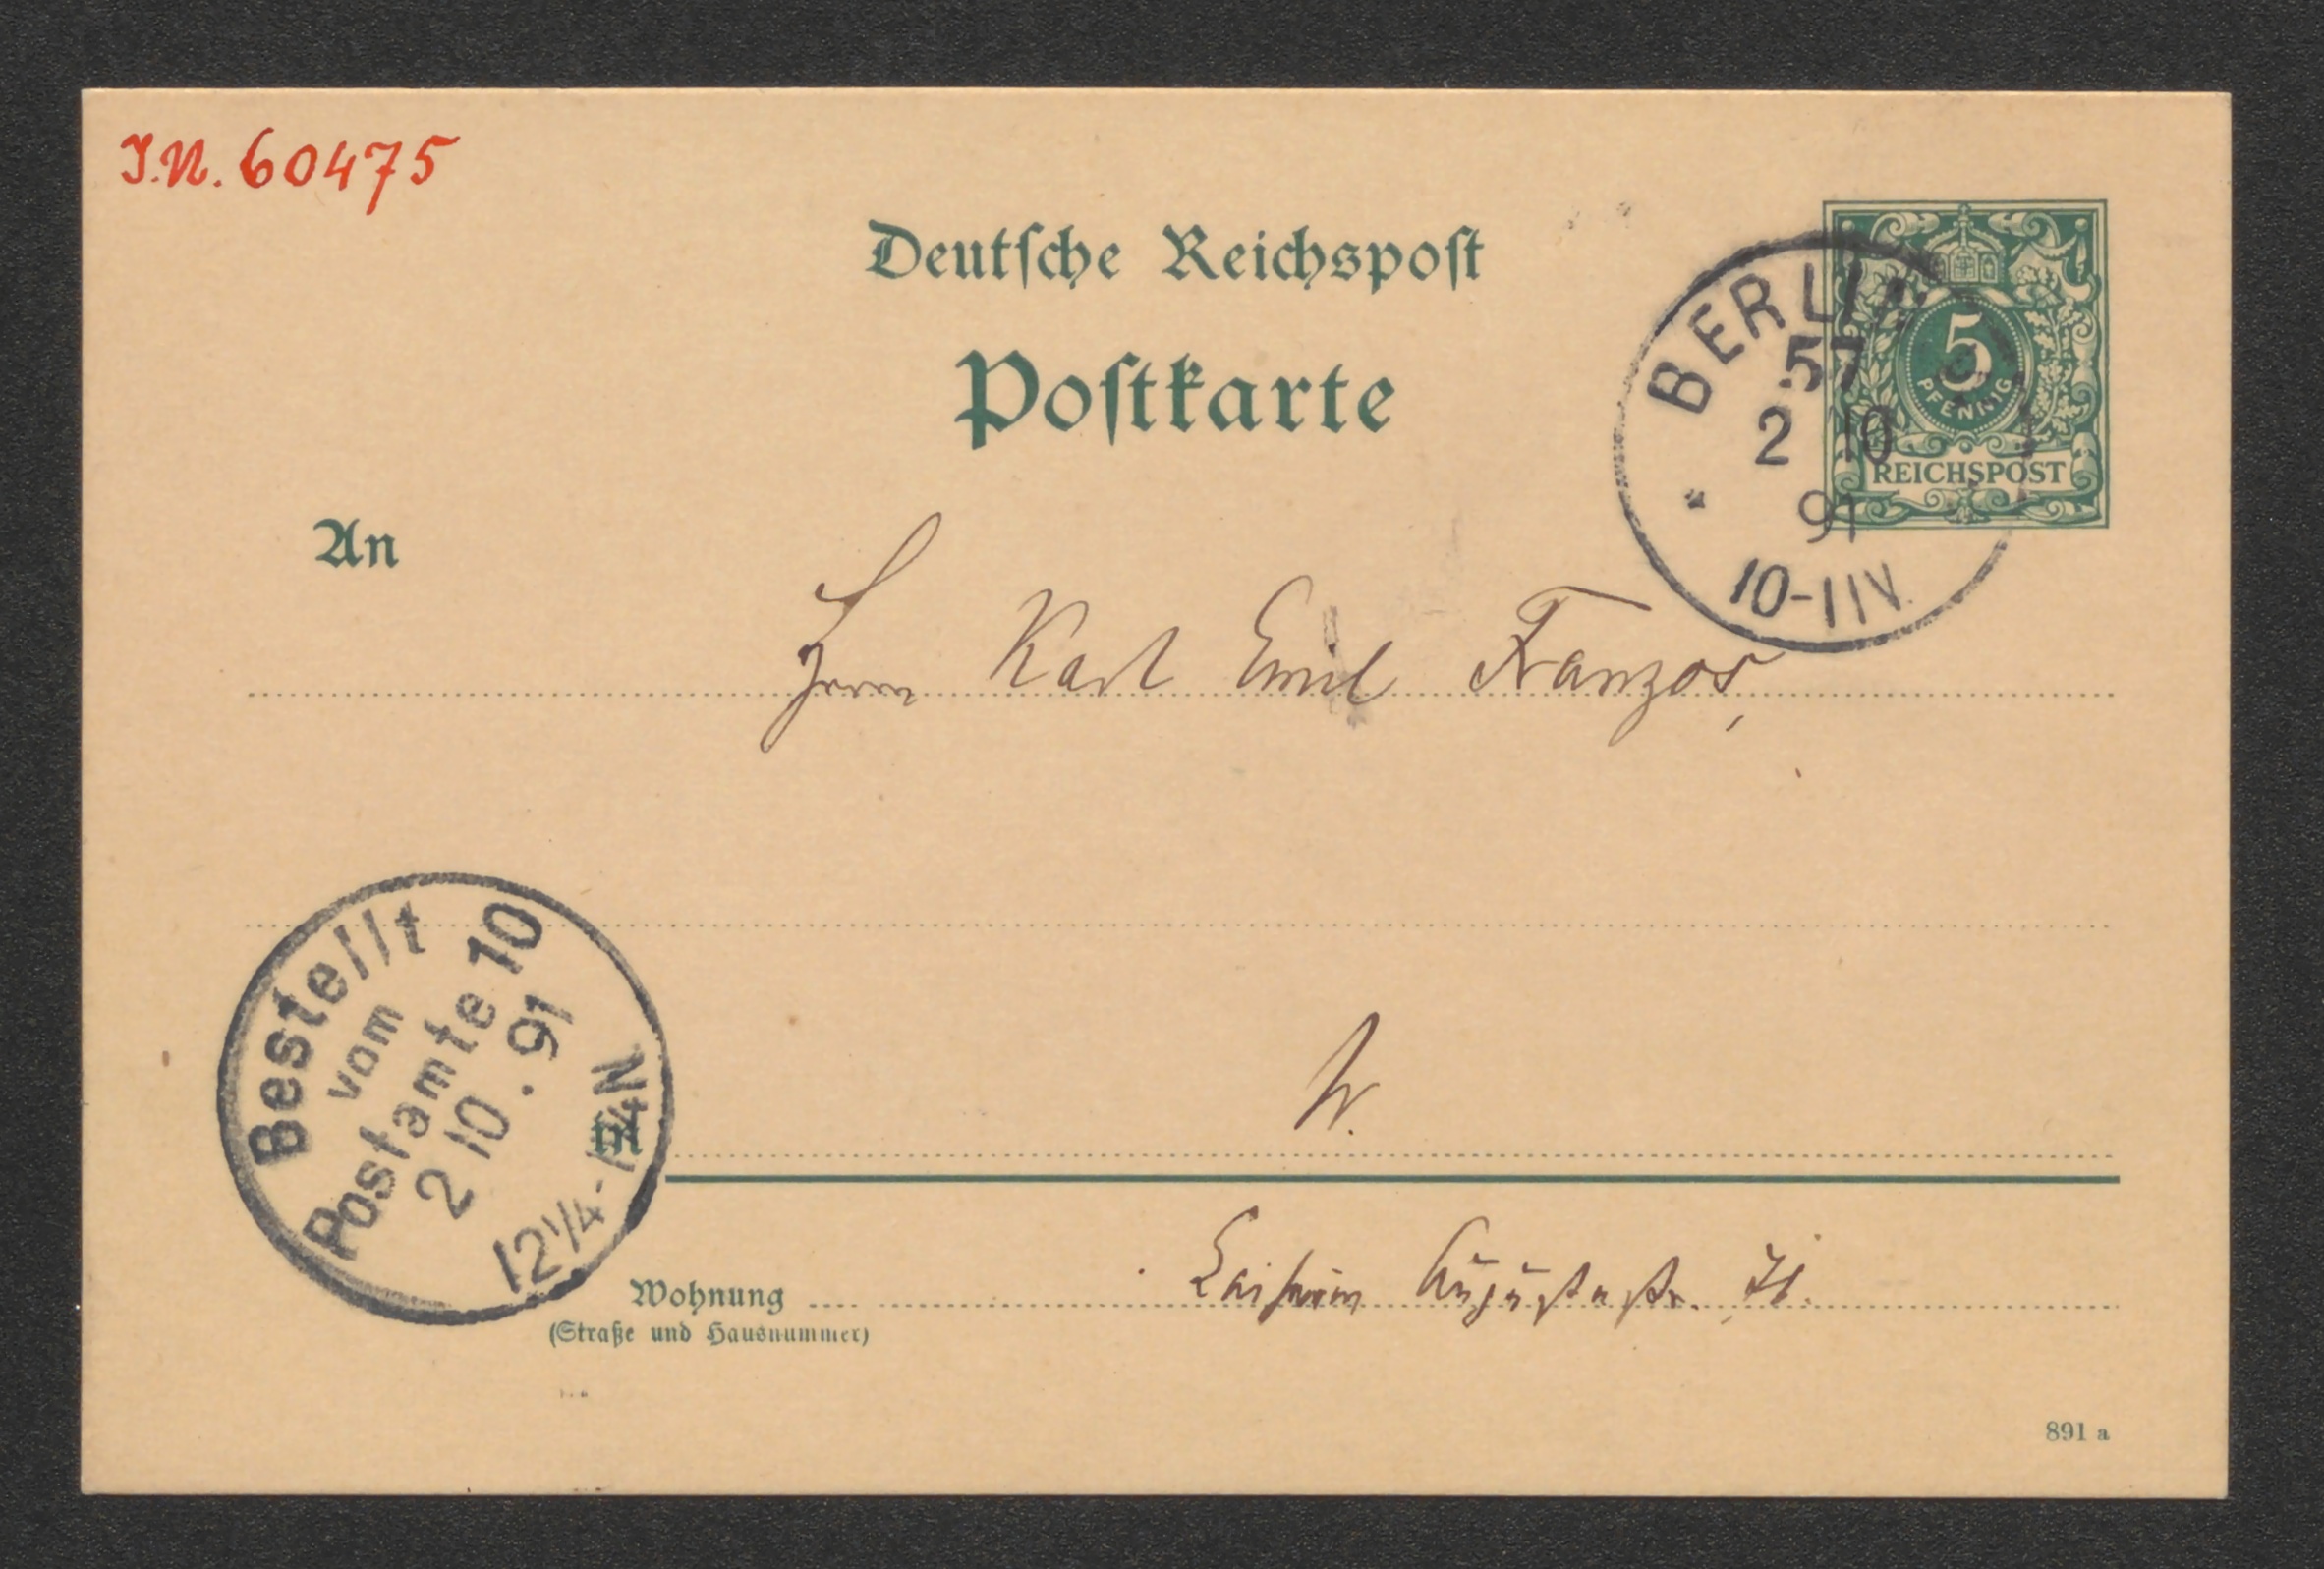 I.N. 60475
Deutſche Reichspoſt
Poſtkarte
5
PFENNIG
REICHSPOST
BERLIN
57
2 10
91
10-11V.
An
Herrn Karl Emil Franzos,
Bestellt
vom
Postamte 10
2 10. 91
12¼-1¼N
in
W.
Wohnung
Kaiserin Auguſtaſtr. 71.
(Straße und Hausnummer)
891 a